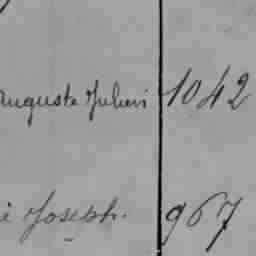 Auguste Julien 1042
Joseph. 967